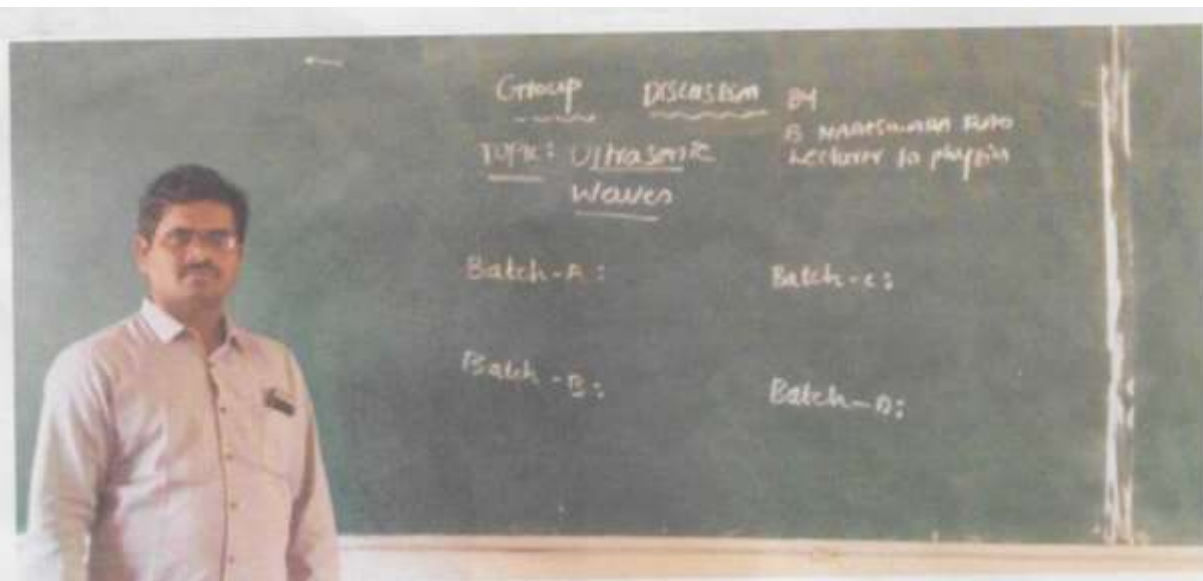 Group Discussion BY
B Rao
Lecturer in physics
TOPIC: Ultrasonic
Waves
Batch-A:
Batch-C:
Batch-B:
Batch-D: